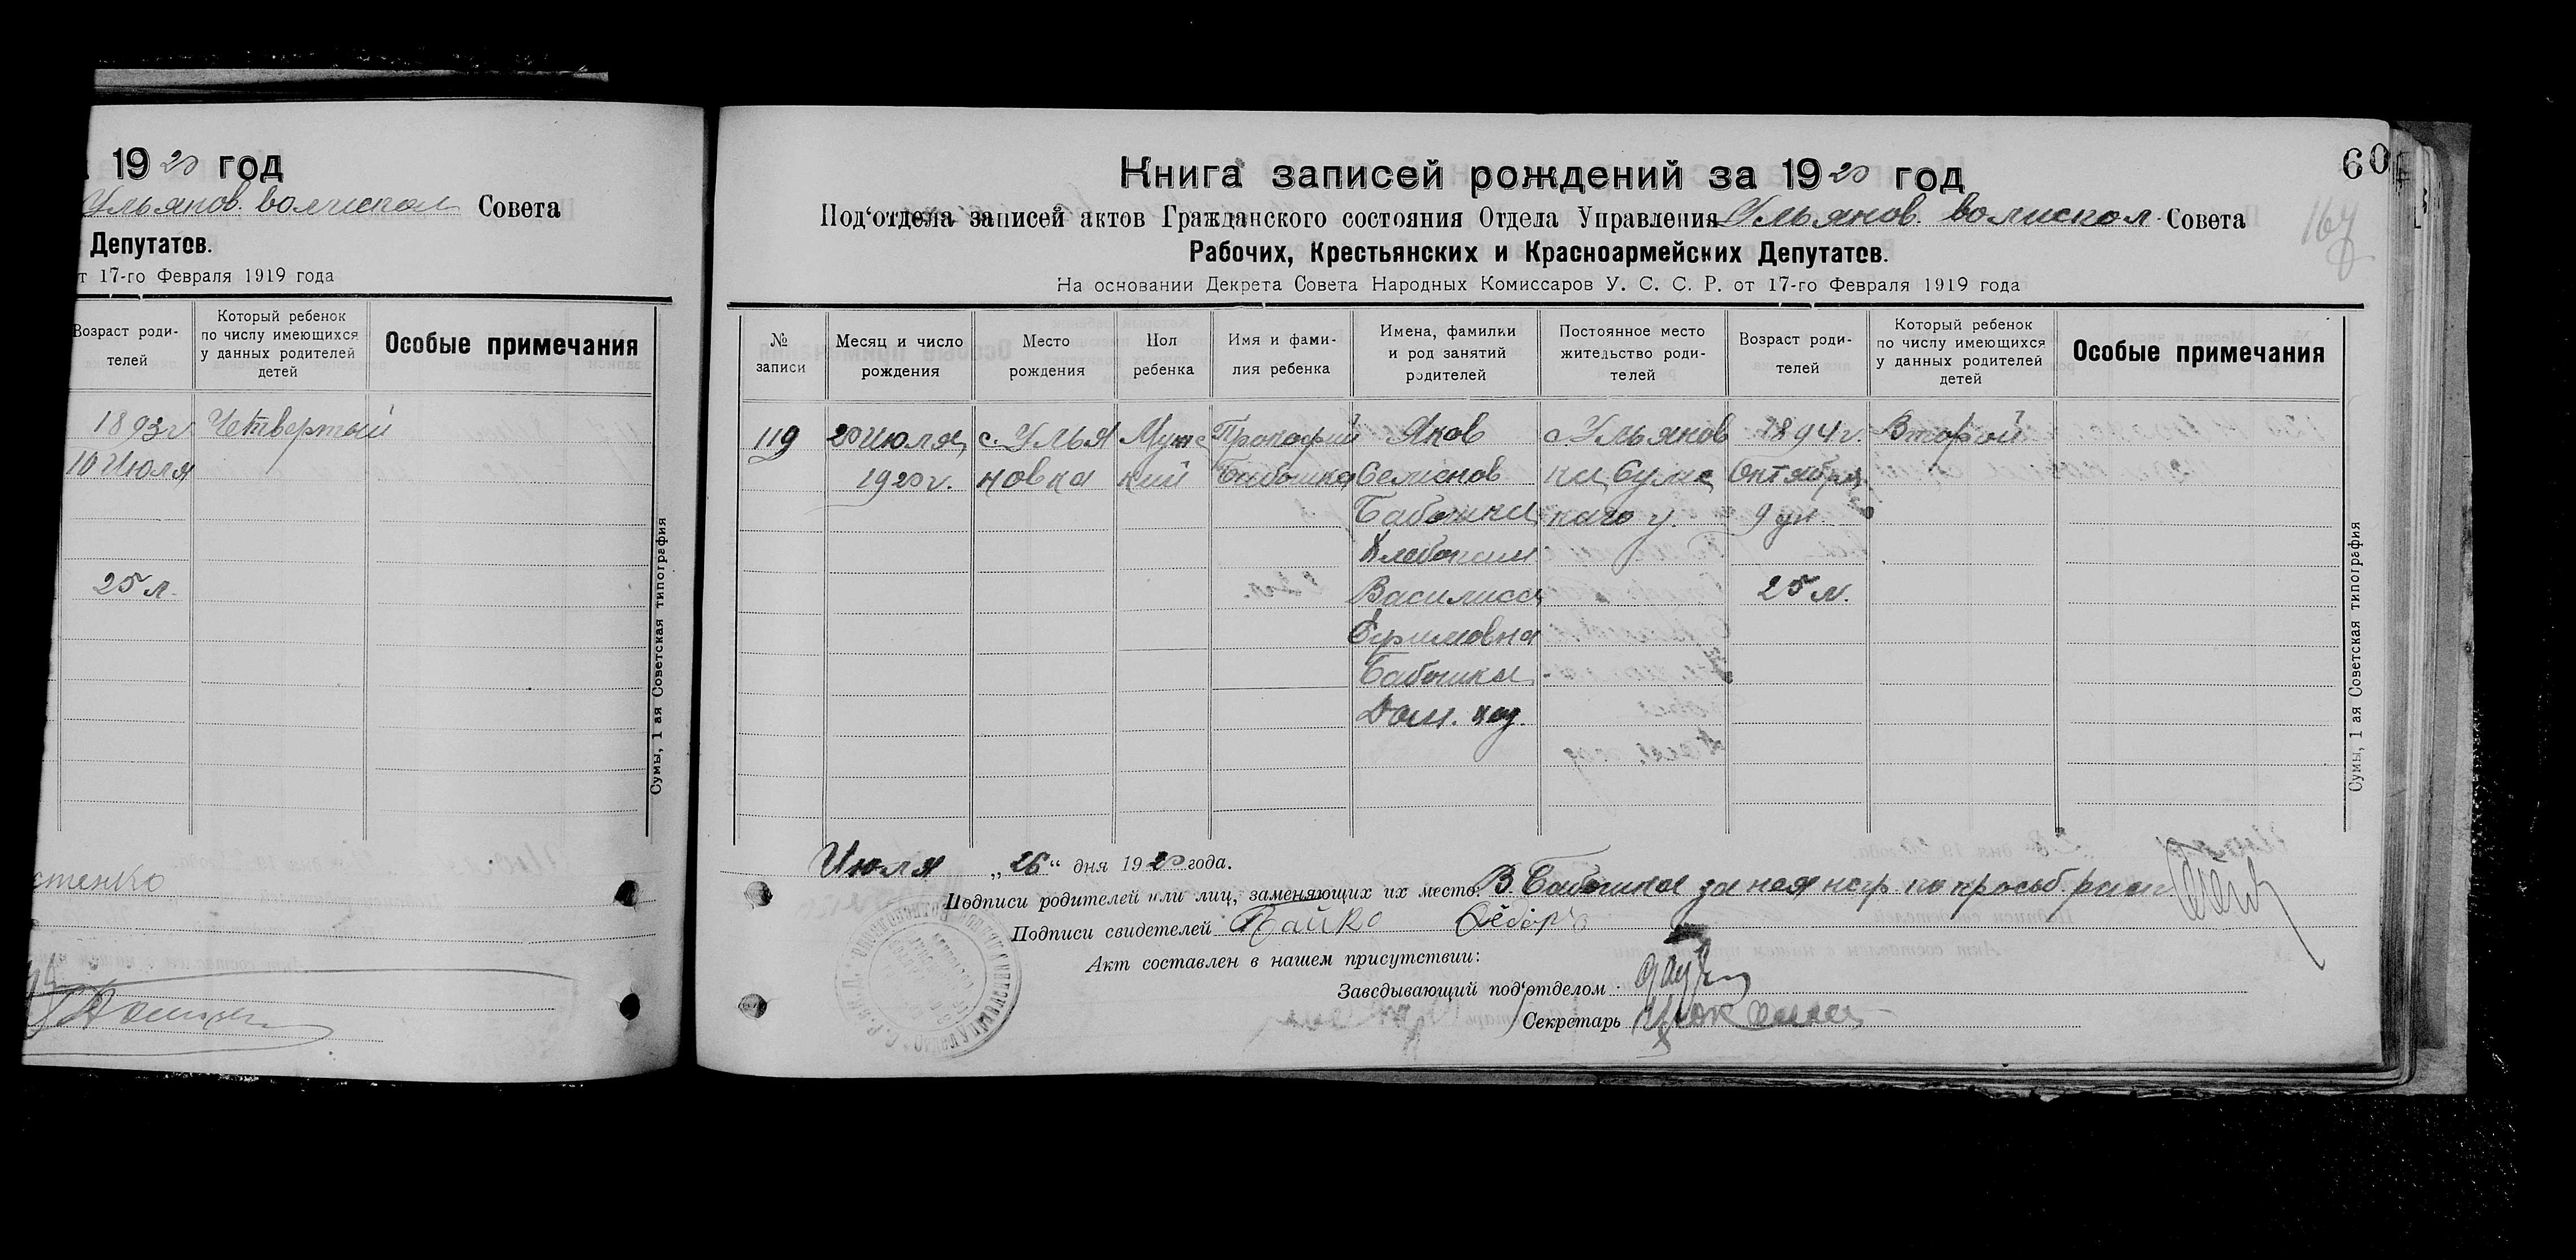 1920 год
Ульянов. волиспол Совета
Депутатов.
т 17-го Февраля 1919 года
Возраст роди-
телей
Который ребенок
по числу имеющихся
у данных родителей
детей
Особые примечания
1893 г. Четвертый
10 Июля
25 л.
Сумы, 1 ая Советская типография
стенко
60
167
Книга записей рождений за 1920 год
Под‘отдела записей актов Гражданского состояния Отдела Управления Ульянов. волиспол. Совета
Рабочих, Крестьянских и Красноармейских Депутатов.
На основании Декрета Совета Народных Комиссаров У. С. С. Р. от 17-го Февраля 1919 года
№
записи
Месяц и число
рождения
Место
рождения
Пол
ребенка
Имя и фами-
лия ребенка
Имена, фамилии
и род занятий
родителей
Постоянное место
жительство роди-
телей
Возраст роди-
телей
Который ребенок
по числу имеющихся
у данных родителей
детей
Особые примечания
119 20 Июля с. Улья Мужс Прокофий Яков с. Ульянов 1894 г. Второй
1920 г. новка кий Бабошка Семенов ки Сумс Октября
Бабошка каго у. 9 дн.
Хлебопаш
Василиса 25 л.
Ефимовна
Бабошка
Дом. хоз.
Сумы, 1 ая Советская типография
Июля „26“ дня 1920 года.
Подписи родителей или лиц, заменяющих их место: В. Бабошка за нея негр. по прозьб. расп
Подписи свидетелей Зайко Федор
Акт составлен в нашем присутствии:
Заведывающий под‘отделом
Секретарь